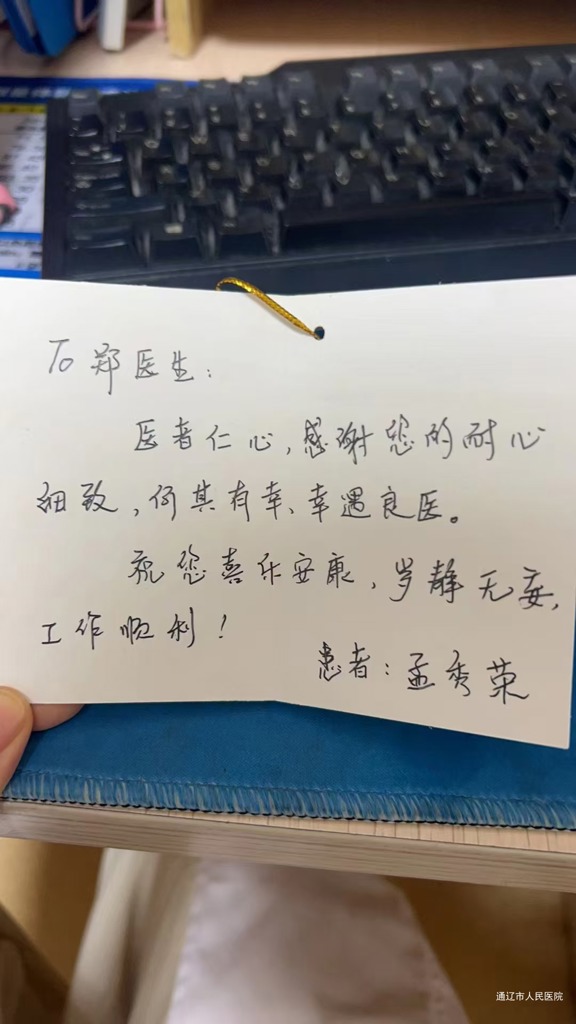 To 郑医生：
医者仁心，感谢您的耐心
细致，何其有幸、幸遇良医。
祝您喜乐安康，岁静无妄，
工作顺利！
患者：孟秀荣
通辽市人民医院